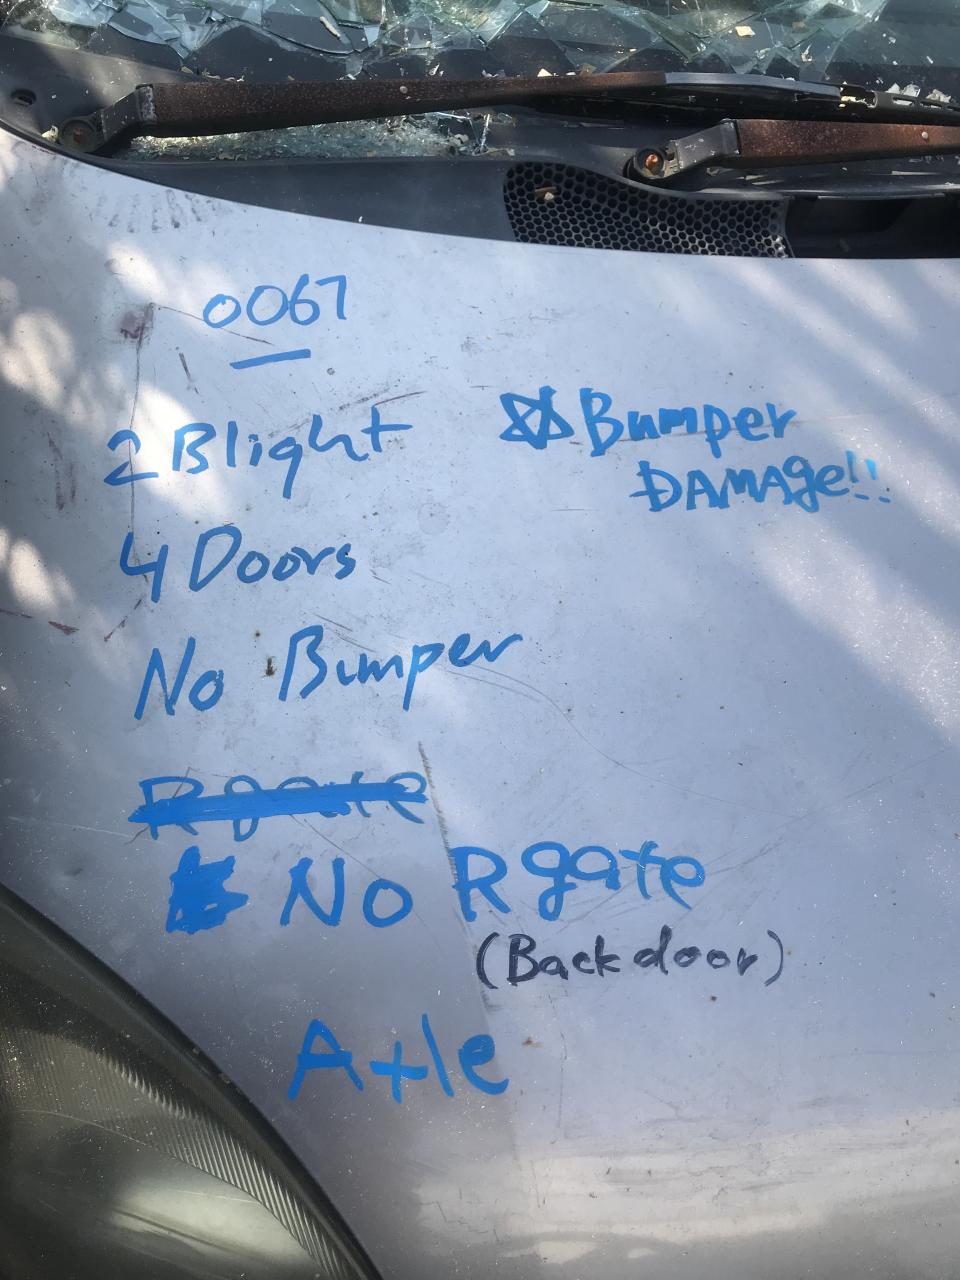 0067
2 Blight
☆ Bumper
DAMAge!!
4 Doors
No Bumper
Rgate
No Rgate
(Backdoor)
Axle